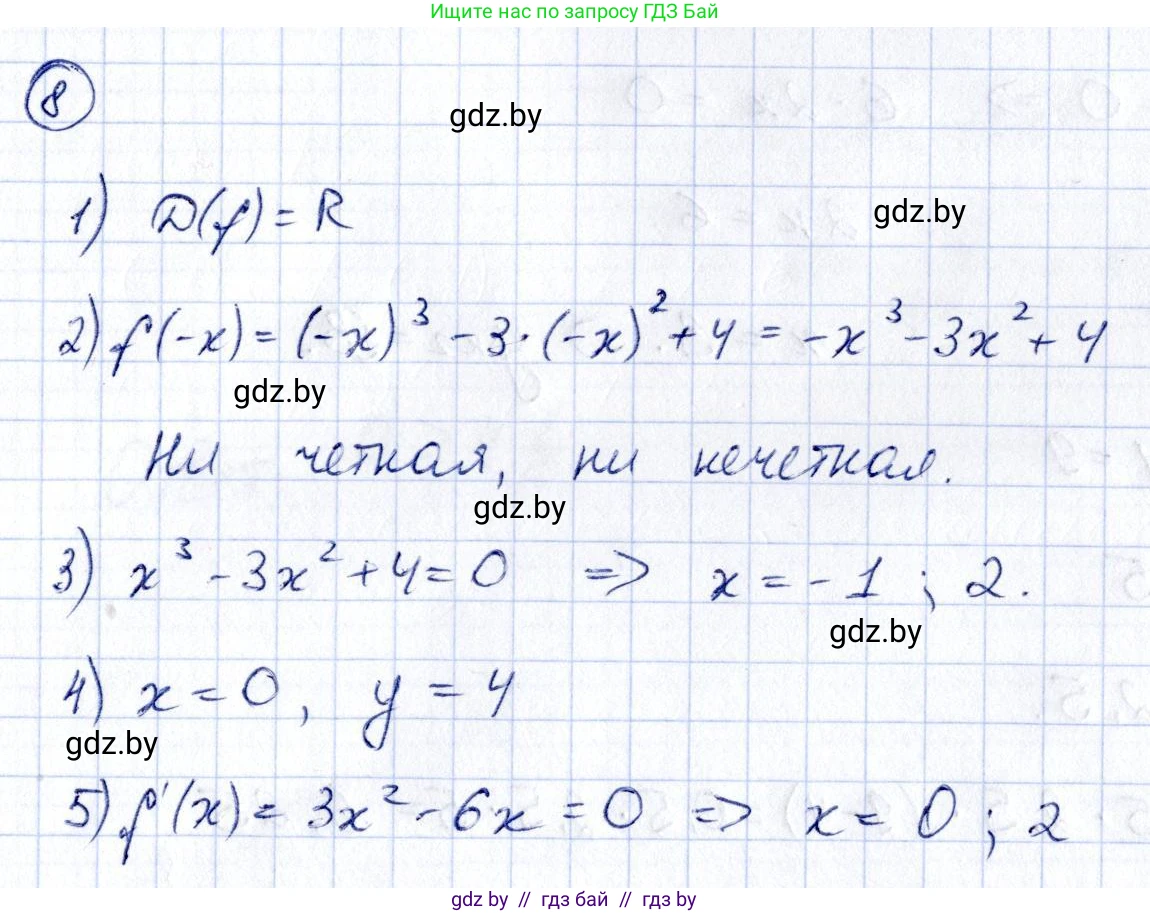 Ищите нас по запросу ГДЗ Бай
8
gdz.by
1) D(f) = R
gdz.by
2) f(-x) = (-x)³ - 3·(-x)² + 4 = -x³ - 3x² + 4
gdz.by
Ни четная, ни нечетная.
gdz.by
3) x³ - 3x² + 4 = 0 => x = -1 ; 2.
gdz.by
4) x = 0, y = 4
gdz.by
5) f'(x) = 3x² - 6x = 0 => x = 0 ; 2
gdz by // гдз бай // гдз by